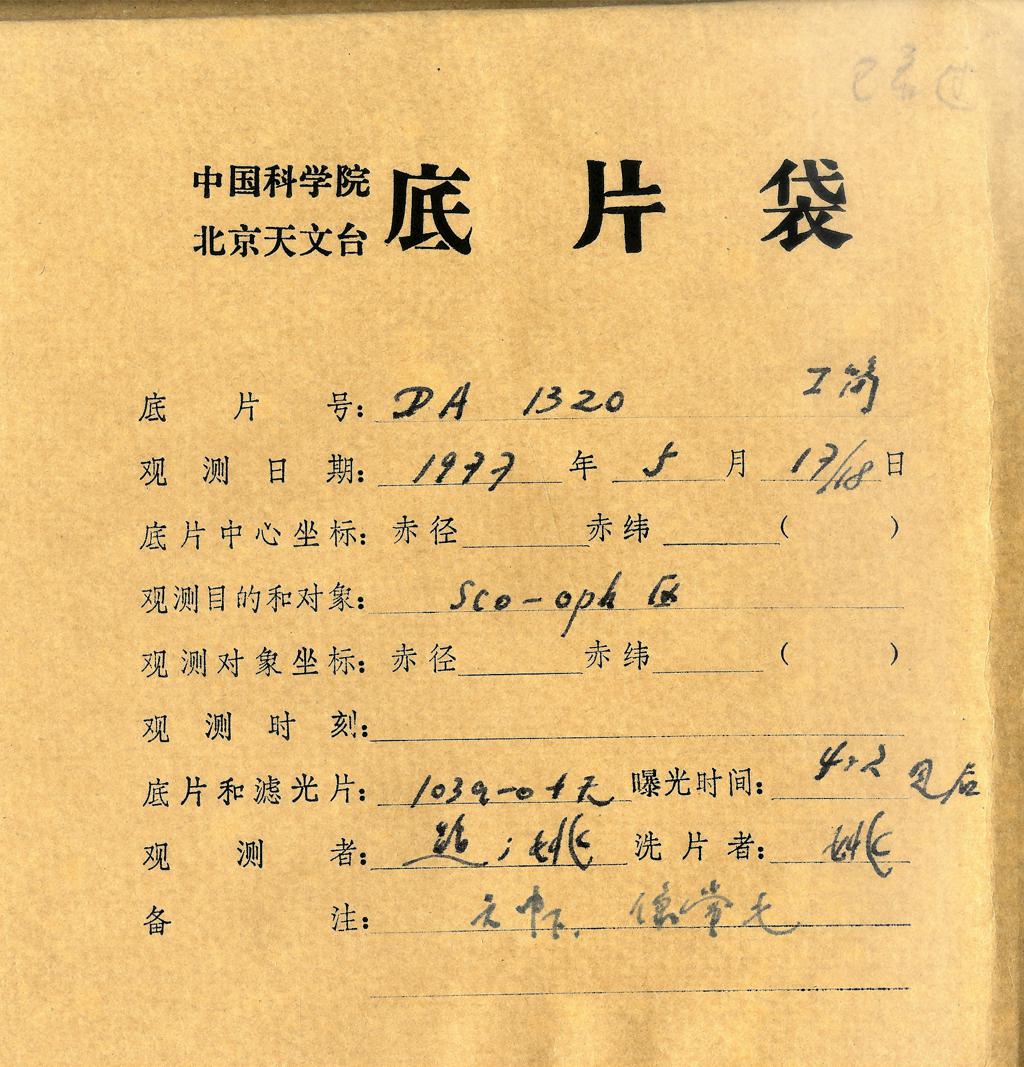 中国科学院
北京天文台
底片袋
底片号: DA 1320
观测日期: 1977 年 5 月 17/18 日
底片中心坐标: 赤径 赤纬 ( )
观测目的和对象: Sco-oph 区
观测对象坐标: 赤径 赤纬 ( )
观测时刻:
底片和滤光片: 103a-o+无 曝光时间:
观测者: 洗片者: 姚
备注: